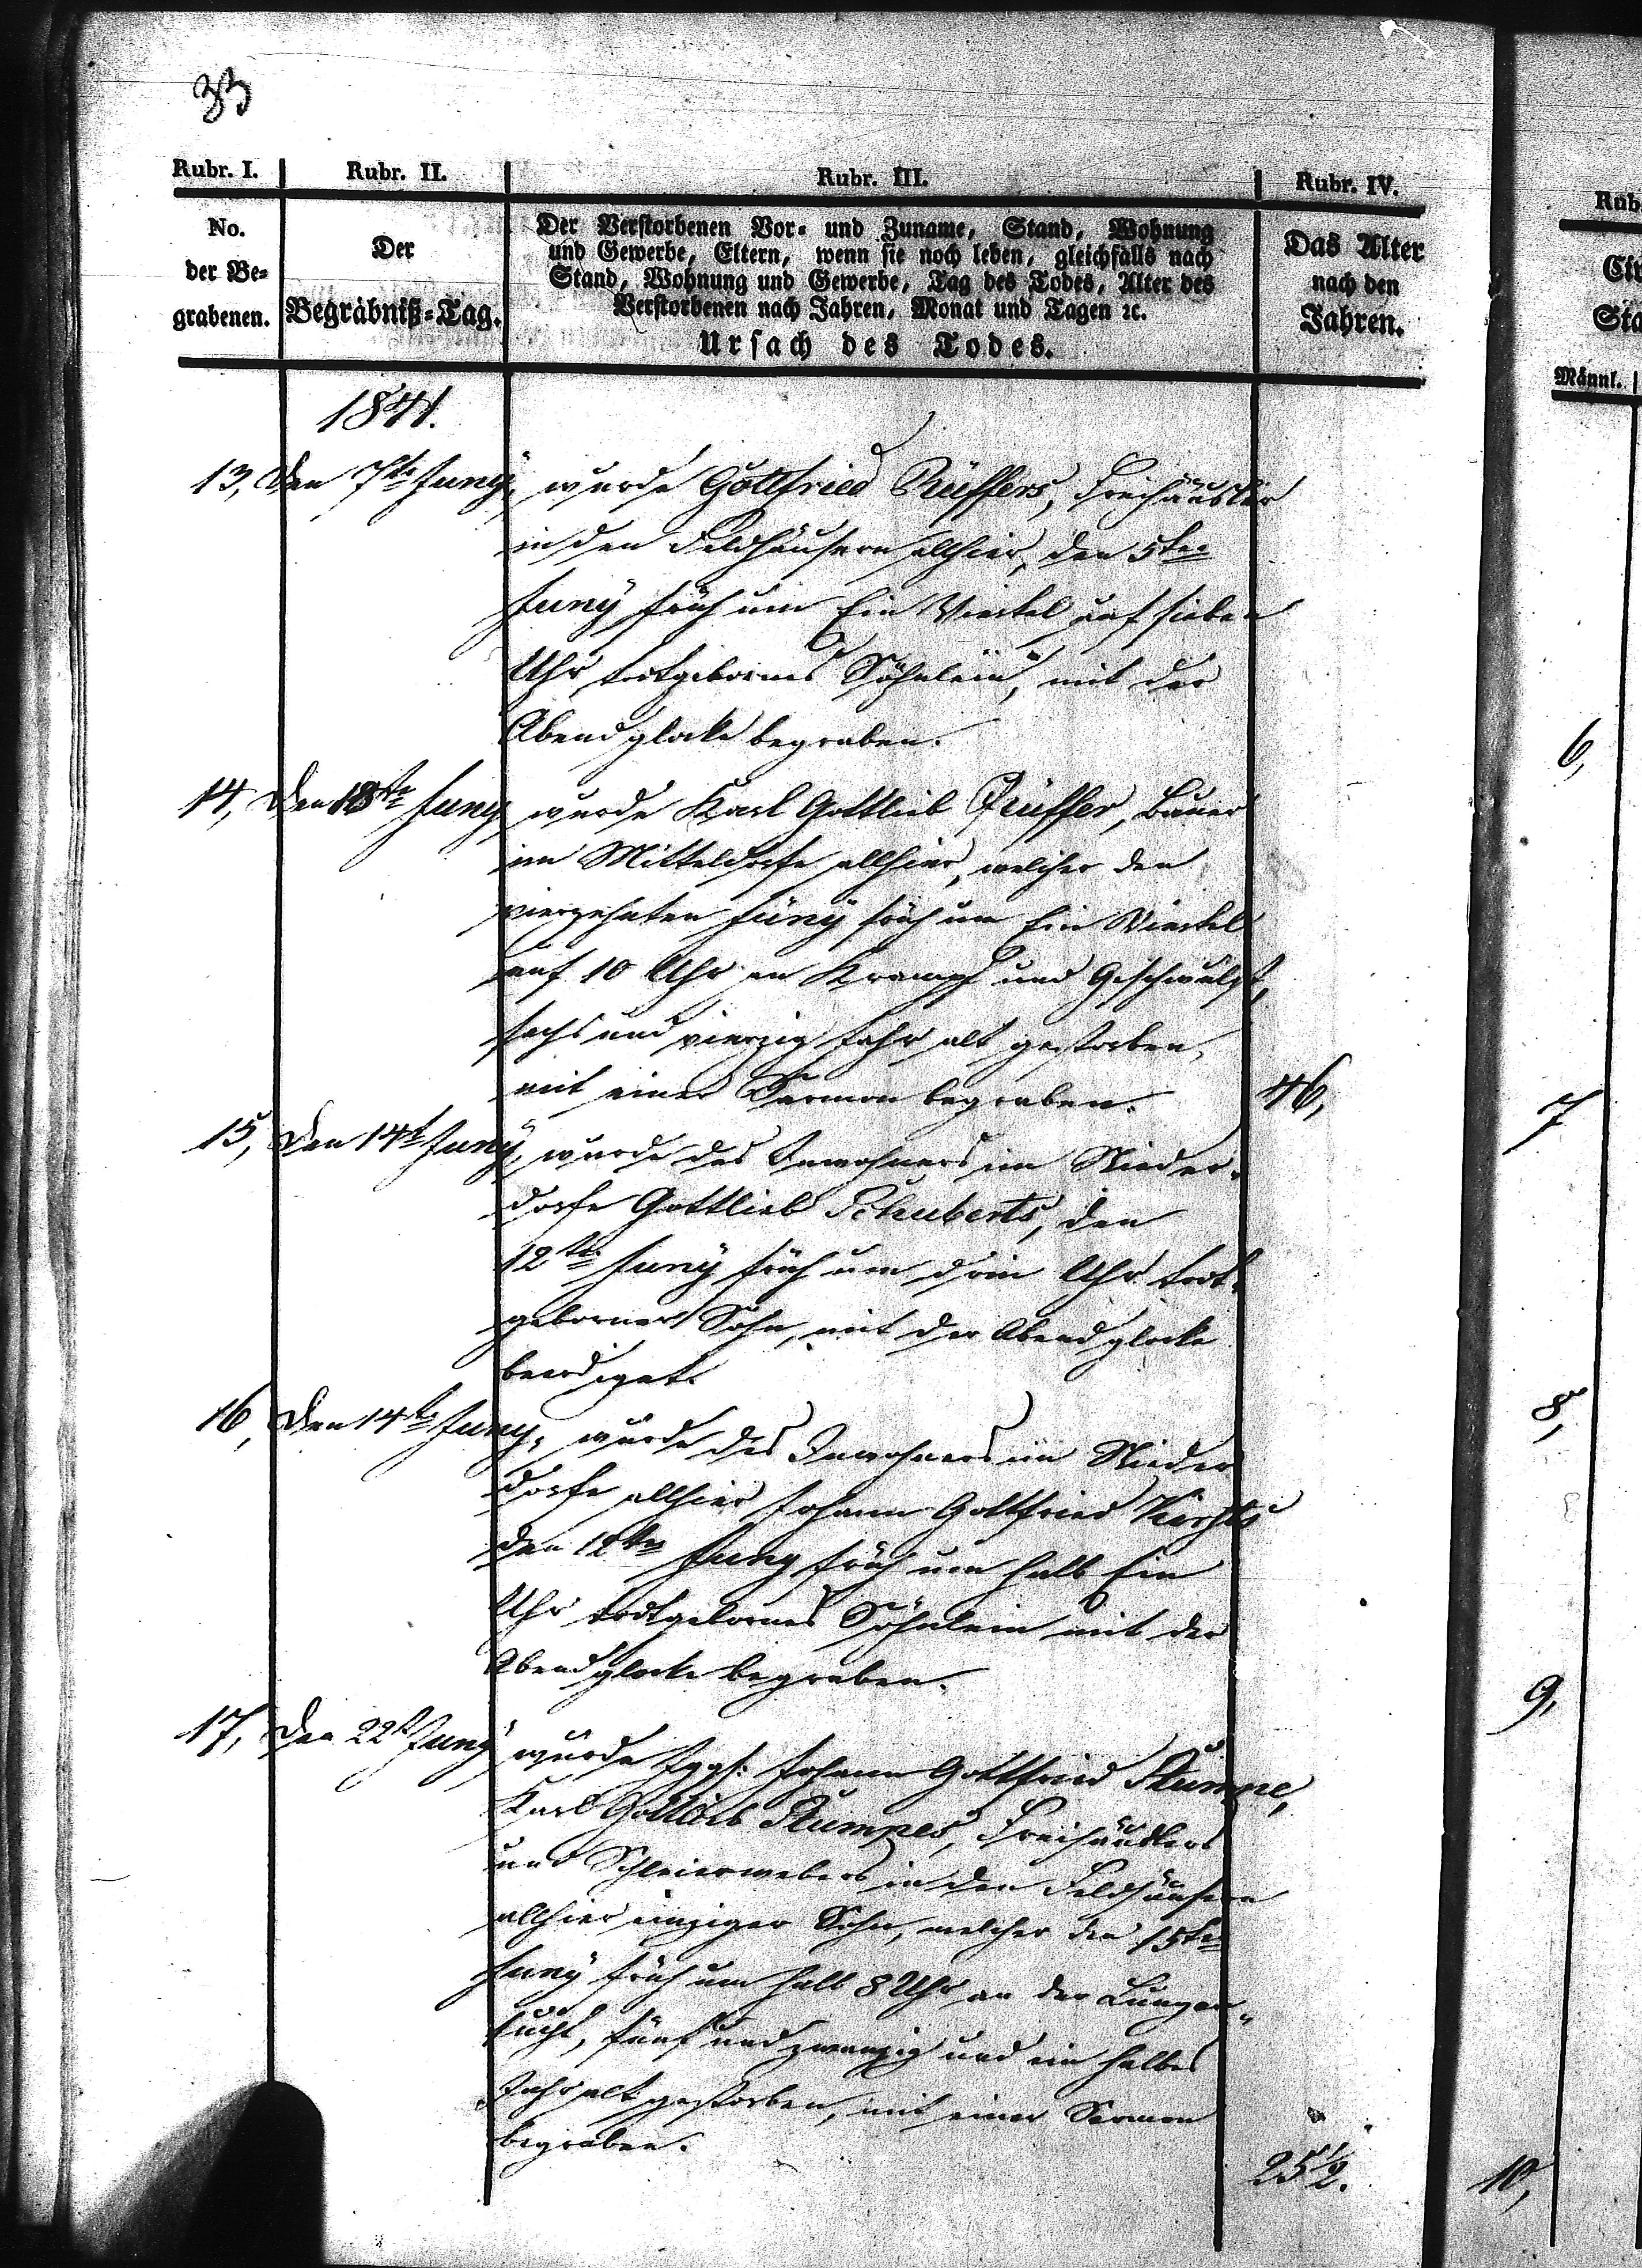 33
Rubr. I.
Rubr. II.
Rubr. III.
Rubr. IV.
No.
der Be-
grabenen.
Der
Begräbniß-Tag.
Der Verstorbenen Vor- und Zuname, Stand, Wohnung
und Gewerbe, Eltern, wenn sie noch leben, gleichfalls nach
Stand, Wohnung und Gewerbe, Tag des Todes, Alter des
Verstorbenen nach Jahren, Monat und Tagen ꝛc.
Ursach des Todes.
Das Alter
nach den
Jahren.
1841.
13, Den 7te Juny, wurde Gottfried Rüffers, Freihäusler
in den Feldhäusern allhier, den 5ten
Juny früh um Ein Viertel auf sieben
Uhr todtgebornes Söhnlein, mit der
Abendglocke begraben.
14, Den 18te Juny wurde Karl Gottlieb Rüffer, Bauer
im Mitteldorfe allhier, welcher den
vierzehnten Juny früh um Ein Viertel
auf 10 Uhr an Krampf und Geschwulst,
sechs und vierzig Jahr alt gestorben,
mit einer Sermon begraben. 46,
15, Den 14t Juny, wurde des Inwohners im Nieder-
dorfe Gottlieb Schuberts, den
12te Juny früh um drei Uhr todt-
geborner Sohn, mit der Abendglocke
beerdiget.
16, Den 14te Juny, wurde des Inwohners im Nieder
dorfe allhier Johann Gottfried
den 12ten Juny früh um halb Ein
Uhr todtgebornes Söhnlein mit der
Abendglocke begraben.
17, Den 22t Juny wurde Jggs: Johann Gottfried Stumpe,
Karl Gottlieb Stumpes, Freihäuslers
und Schleierwebers in den Feldhäusern
allhier einziger Sohn, welcher den 15ten
Juny früh um halb 8 Uhr an der Lungen-
sucht, fünf und zwanzig und ein halbes
Jahr alt gestorben, mit einer Sermon
begraben.
25 1/2.
Rub
Männl.
6,
7
8,
9,
10,